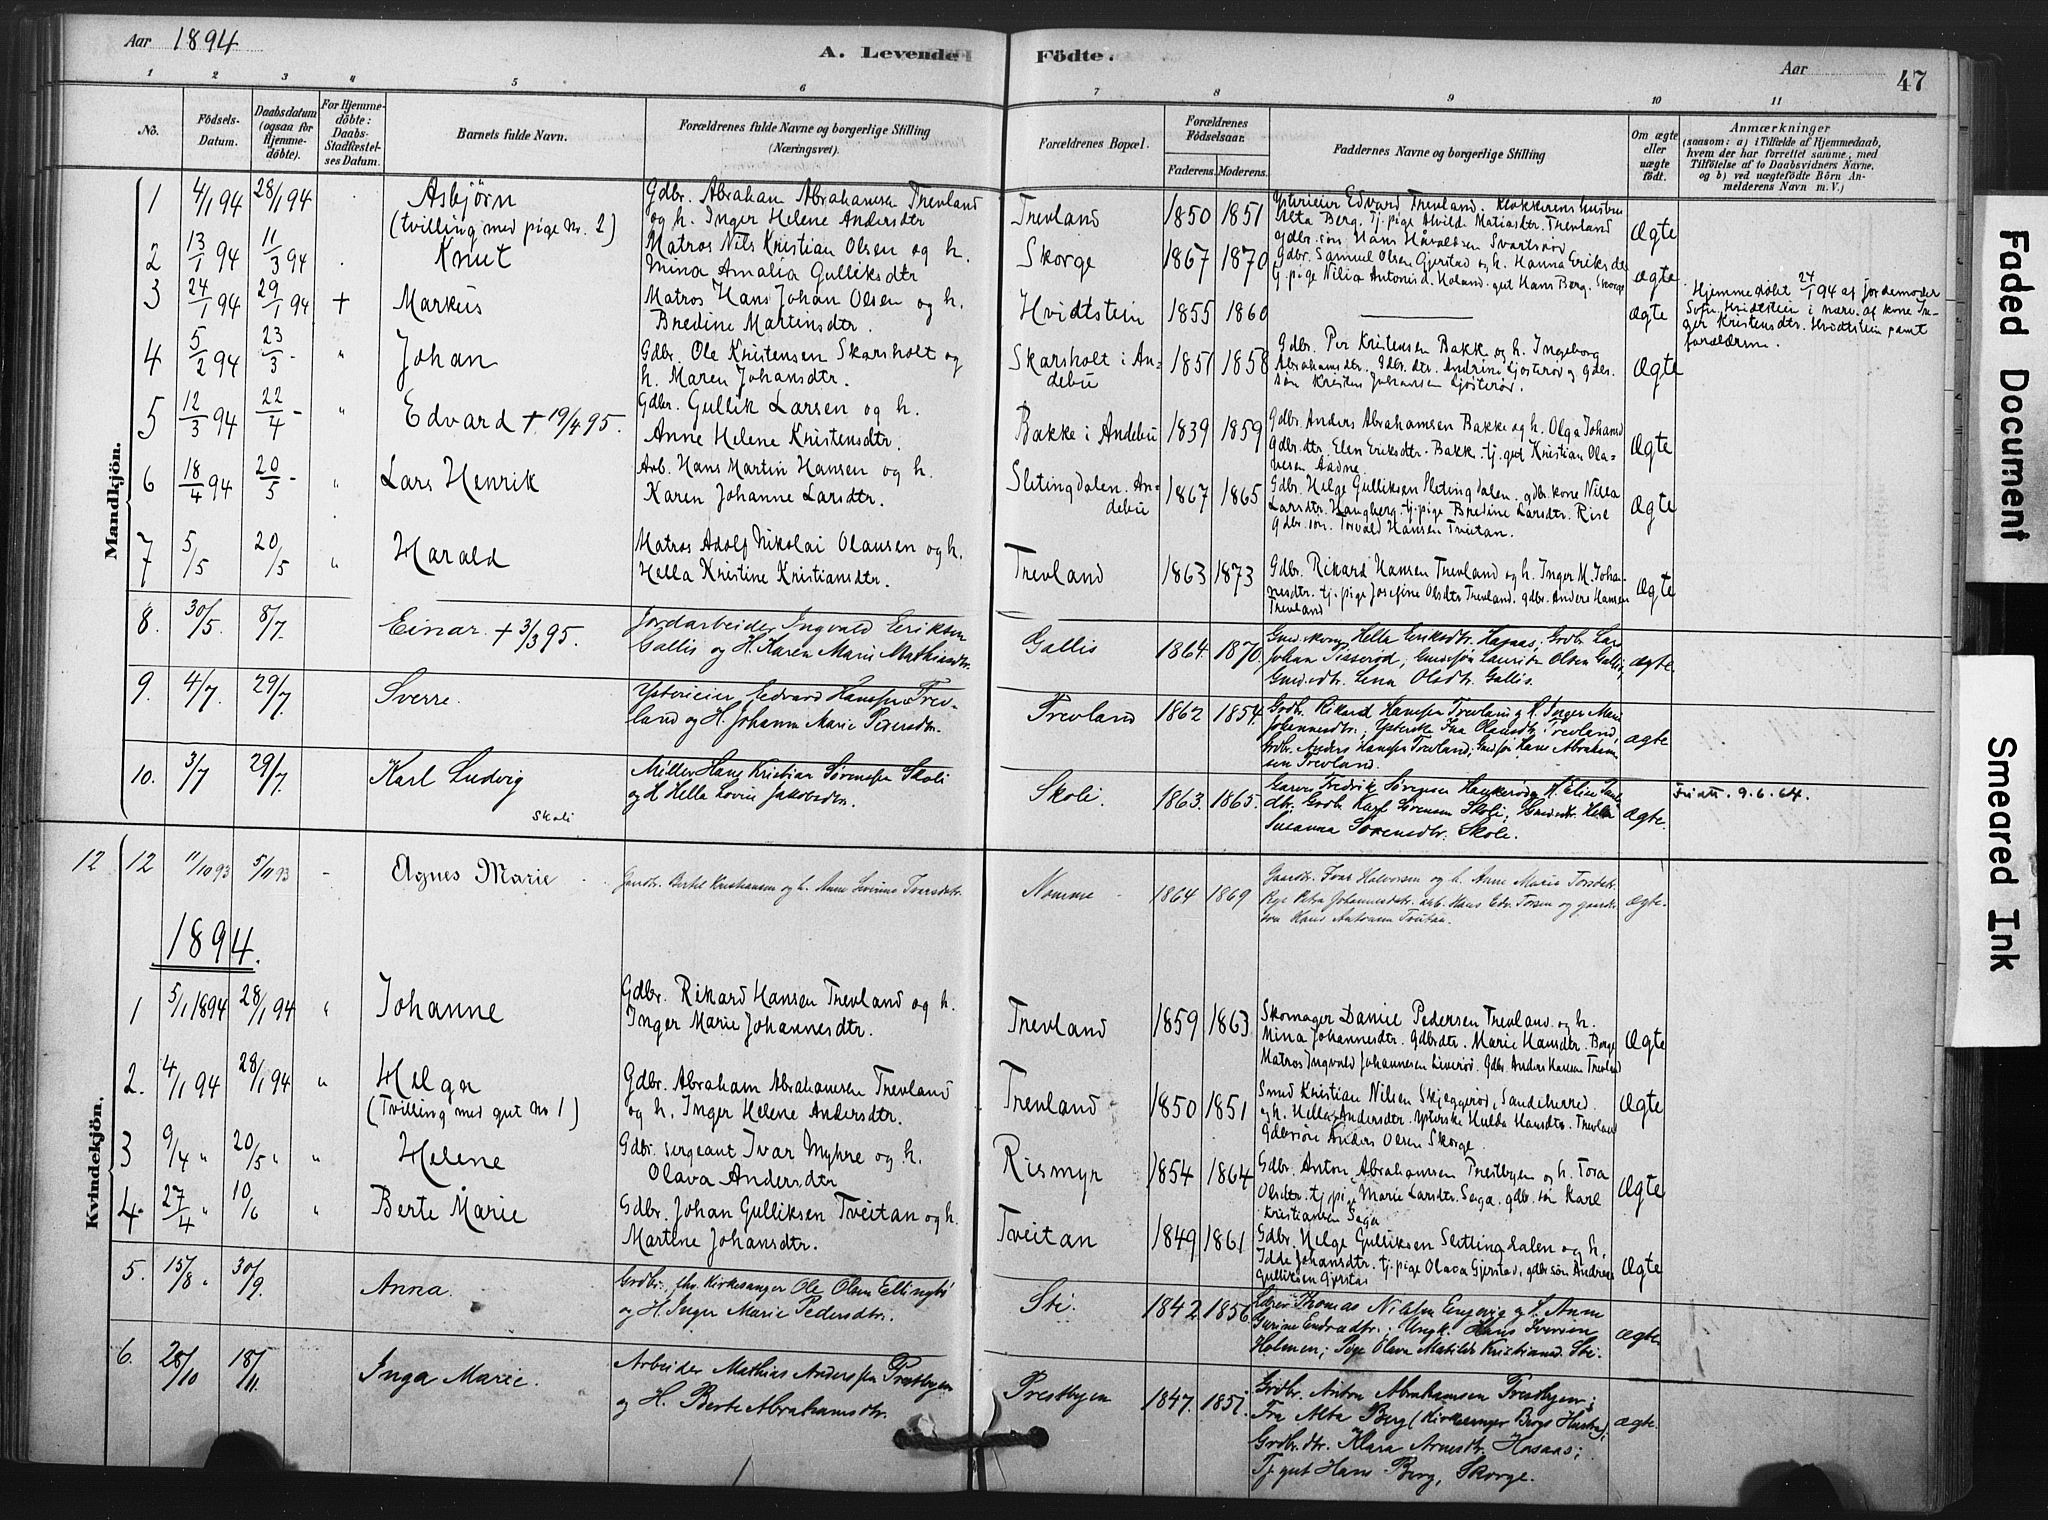 Aar 1894
A. Levende Födte.
Aar
47
1 2 3 4 5 6 7 8 9 10 11
No.
Födsels-Datum.
Daabsdatum (ogsaa for Hjemme-döbte).
For Hjemme-döbte: Daabs-Stadfæstel-ses Datum.
Barnets fulde Navn.
Forældrenes fulde Navne og borgerlige Stilling (Næringsvei).
Forældrenes Bopæl.
Forældrenes Födselsaar.
Faderens. Moderens.
Faddernes Navne og borgerlige Stilling
Om ægte eller uægte födt.
Anmærkninger
(saasom: a) i Tilfælde af Hjemmedaab, hvem der har forrettet samme, med Tilföielse af to Daabsvidners Navne, og b) ved uægtefödte Börn An-melderens Navn m. V.)
Mandkjön.
1 4/1 94 28/1 94 Asbjørn
(tvilling med pige No. 2)
Gdbr. Abraham Abrahamsen Trevland
og h. Inger Helene Andersdtr
Trevland 1850 1851
Ysterieier Edvard Trevland. Klokkerens hustru
Alta Berg. Tj. pige Alvild Matiasdtr. Trevland
gdbr. søn Hans Håvaldsen Svartsrød
Ægte
2 13/1 94 11/3 94 Knut
Matros Nils Kristian Olsen og h.
Mina Amalia Gulliksdtr
Skorge 1867 1870
Gdbr. Samuel Olsen Gjerstad og h. Hanna Eriksdtr
tj. pige Nilia Antonisd. Holand. gut Hans Berg. Skorge
ægte
3 24/1 94 29/1 94 + Markus
Matros Hans Johan Olsen og h.
Bredine Martinsdtr.
Hvidtstein 1855 1860
ægte
Hjemmedøbt 24/1 94 af jordemoder
Sofie Hvidtstein i nærv. af kone In-
ger Kristensdtr. Hvidtstein samt
forældrene.
4 5/2 94 23/3 - " Johan
Gdbr. Ole Kristensen Skarsholt og
h. Maren Johansdtr.
Skarsholt i An-
debu
1851 1858
Gdbr. Per Kristensen Bakk og h. Ingeborg
Abrahamsdtr. Gdbr. dtr. Andrine Gjøsterød og gdbr.
søn Kristen Johansen Gjøsterød.
Ægte
5 12/3 94 22/4 - " Edvard + 19/4 95.
Gdbr. Gullik Larsen og h.
Anne Helene Kristensdtr.
Bakke i Andebu 1839 1859
Gdbr. Anders Abrahamsen Bakke og h. Olga Johansd
gdbr. dtr. Elen Eriksdtr. Bakk. tj. gut Kristian Ola-
vesen Aadne
Ægte
6 18/4 94 20/5 - " Lars Henrik
Arb. Hans Martin Hansen og h.
Karen Johanne Larsdtr.
Slitingdalen. An-
debu
1867 1865
Gdbr. Helge Gulliksen Slitingdalen. gdbr. kone Nilla
Larsdtr. Haugberg. tj. pige Bredine Larsdtr. Rise
gdbr. søn. Torvald Hansen Tveitan.
Ægte
7 5/5 20/5 " Harald
Matros Adolf Nikolai Olausen og h.
Hella Kristine Kristiansdtr.
Trevland 1863 1873
Gdbr. Rikard Hansen Trevland og h. Inger M. Joha-
nesdtr. tj. pige Josefine Olsdtr Trevland, gdbr. Anders Hansen
Trevland
Ægte
8. 30/5. 8/7. Einar. + 3/3 95.
Jordarbeider Ingvald Eriksen
Gallis og H. Karen Marie Mathiasdtr.
Gallis 1864. 1870.
Gmd. kone Hella Eriksdtr. Hasaas; Grdbr. Lars
Johan Pisserød; Gmd. søn Laurits Olsen Gallis;
Gmd. dtr. Lina Olsdtr. Gallis.
ægte
9. 4/7. 29/7. Sverre.
Ysterieier Edvard Hansen Trev-
land og H. Johanna Marie Pedersdtr.
Trevland 1862 1854.
Grdbr. Rikard Hansen Trevland og H. Inger Marie
Johannesdtr.; Ysterske Ina Olausdtr. Trevland;
Grdbr. Anders Hansen Trevland; Gmd. søn Hans Abraham-
sen Trevland.
ægte.
10. 3/7 29/7. Karl Ludvig
Skoli
Møller Hans Kristian Sørensen Skoli
og H. Hella Lovise Jakobsdtr.
Skoli. 1863. 1865.
Garver Fredrik Sørensen Haukerød og H. Elise
dtr. Grdbr. Karl Sørensen Skoli; Gmd. dtr. Hella
Susanna Sørensdtr. Skoli.
Ægte.
Friatt. 9.6.64.
12 12 11/10 93 5/11 93 - Agnes Marie
Gaardbr. Bertel Kristiansen og h. Anne Lovine Torsdtr.
Namme 1864 1869
Gaardbr. Ivar Halvorsen og h. Anne Marie Torsdtr.
Pige Petra Johannesdtr. arb. Hans Edv. Torsen og gaardbr.
søn Hans Antonsen Tveitan.
ægte.
1894.
Kvindekjön.
1 5/1 1894 28/1 94 " Johanne
Gdbr. Rikard Hansen Trevland og h.
Inger Marie Johannesdtr.
Trevland 1859 1863
Skomager Daniel Pedersen Trevland og h.
Mina Johannesdtr. Gdbrdtr. Marie Hansdtr. Borge
Matros Ingvald Johannesen Liverød. Gdbr. Anders Hansen Trevland
Ægte
2. 4/1 94 28/1 94 " Helga
(Tvilling med gut No 1)
Gdbr. Abraham Abrahamsen Trevland
og h. Inger Helene Andersdtr.
Trevland 1850 1851
Smed Kristian Nilsen Skjeggerød, Sandeherred
og h. Hella Andersdtr. Ysterske Hulda Hansdtr. Trevland
Gdbrsøn Anders Olsen Skorge
Ægte
3 9/4 " 20/5 " " Helene
Gdbr. sergeant Ivar Myhre og h.
Olava Andersdtr
Rismyr 1854 1864
Gdbr. Anton Abrahamsen Prestbyen og h. Tora
Olsdtr. tj. pige Marie Larsdtr. Saga. gdbr. sø Karl
Kristiansen Saga
Ægte
4. 27/4 " 10/6 " Berte Marie
Gdbr. Johan Gulliksen Tveitan og h.
Martine Johansdtr.
Tveitan 1849 1861
Gdbr. Helge Gulliksen Slittingdalen og h.
Idde Johansdtr. tj. pige Olava Gjerstad, gdbr søn Andreas
Gulliksen Gjerstad
Ægte
5. 15/8 " 30/9. Anna.
Grdbr. fhv. Kirkesanger Ole Olsen Ellingbø
og H. Inger Marie Pedersdtr.
Sti. 1842 1856
Lærer Thomas Nilsen Engevig og H. Anne
Gurine Endresdtr.; Ungk. Hans Iversen
Holmen; Pige Olava Matilde Kristiansd. Sti.
ægte
6. 28/10 18/11. Inga Marie.
Arbeider Mathias Anderssen Prestbyen
og H. Berte Abrahamsdtr.
Prestbyen 1847. 1851.
Grdbr. Anton Abrahamsen Prestbyen;
Fru Alta Berg (Kirkesanger Bergs Hustru);
Grdbr. dtr. Klara Arnesdtr. Hasaas;
Tj. gut Hans Berg, Skorge.
ægte.
Faded Document
Smeared Ink